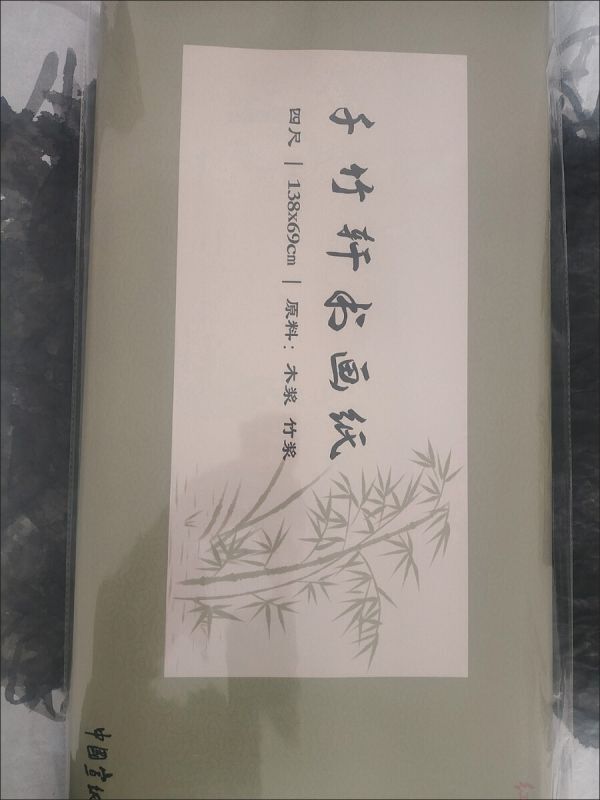 子竹轩书画纸
四尺 | 138x69cm | 原料：木浆 竹浆
中國宣紙